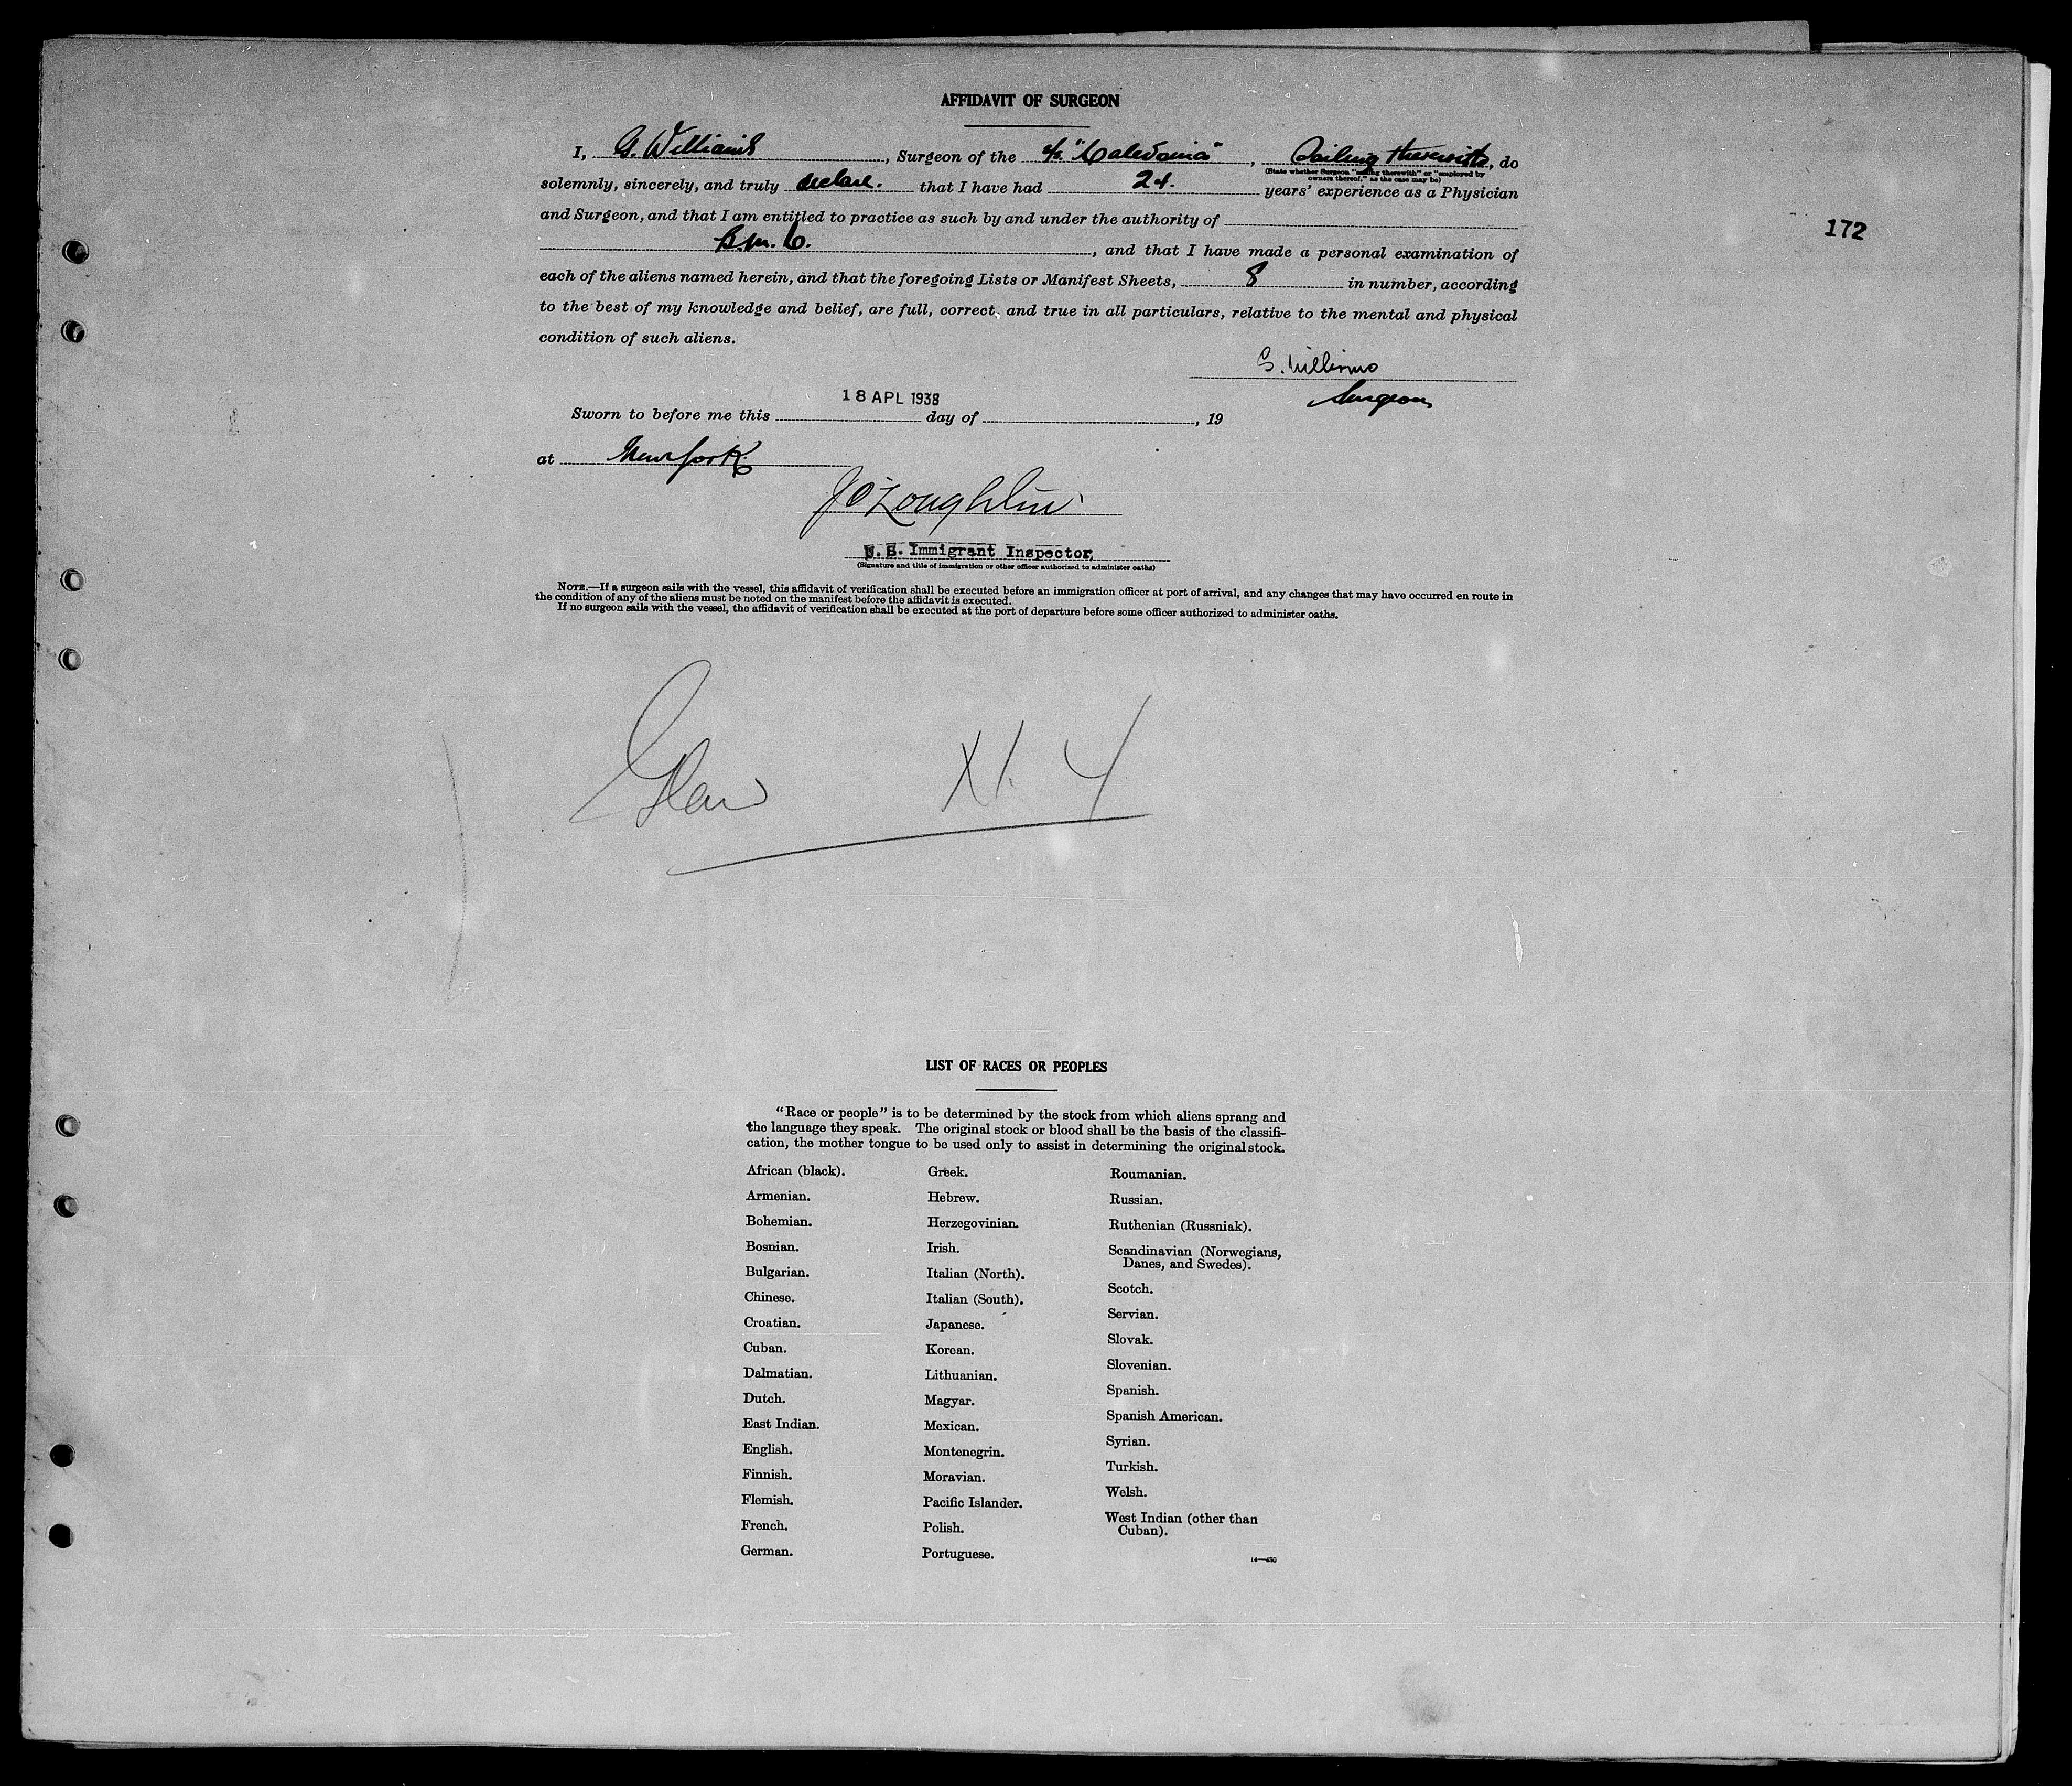 AFFIDAVIT OF SURGEON
I, G. Williams, Surgeon of the s/s "Caledonia", Sailing therewith, do
(State whether Surgeon "sailing therewith" or "employed by
owners thereof," as the case may be)
solemnly, sincerely, and truly declare. that I have had 24. years' experience as a Physician
and Surgeon, and that I am entitled to practice as such by and under the authority of
B.M.C., and that I have made a personal examination of
172
each of the aliens named herein, and that the foregoing Lists or Manifest Sheets, 8 in number, according
to the best of my knowledge and belief, are full, correct, and true in all particulars, relative to the mental and physical
condition of such aliens.
G. Williams
Surgeon
18 APL 1938
Sworn to before me this day of , 19
at New York
J O'Loughlin
U.S. Immigrant Inspector
(Signature and title of immigration or other officer authorized to administer oaths)
NOTE.—If a surgeon sails with the vessel, this affidavit of verification shall be executed before an immigration officer at port of arrival, and any changes that may have occurred en route in
the condition of any of the aliens must be noted on the manifest before the affidavit is executed.
If no surgeon sails with the vessel, the affidavit of verification shall be executed at the port of departure before some officer authorized to administer oaths.
4
LIST OF RACES OR PEOPLES
"Race or people" is to be determined by the stock from which aliens sprang and
the language they speak. The original stock or blood shall be the basis of the classifi-
cation, the mother tongue to be used only to assist in determining the original stock.
African (black).
Armenian.
Bohemian.
Bosnian.
Bulgarian.
Chinese.
Croatian.
Cuban.
Dalmatian.
Dutch.
East Indian.
English.
Finnish.
Flemish.
French.
German.
Greek.
Hebrew.
Herzegovinian.
Irish.
Italian (North).
Italian (South).
Japanese.
Korean.
Lithuanian.
Magyar.
Mexican.
Montenegrin.
Moravian.
Pacific Islander.
Polish.
Portuguese.
Roumanian.
Russian.
Ruthenian (Russniak).
Scandinavian (Norwegians,
Danes, and Swedes).
Scotch.
Servian.
Slovak.
Slovenian.
Spanish.
Spanish American.
Syrian.
Turkish.
Welsh.
West Indian (other than
Cuban).